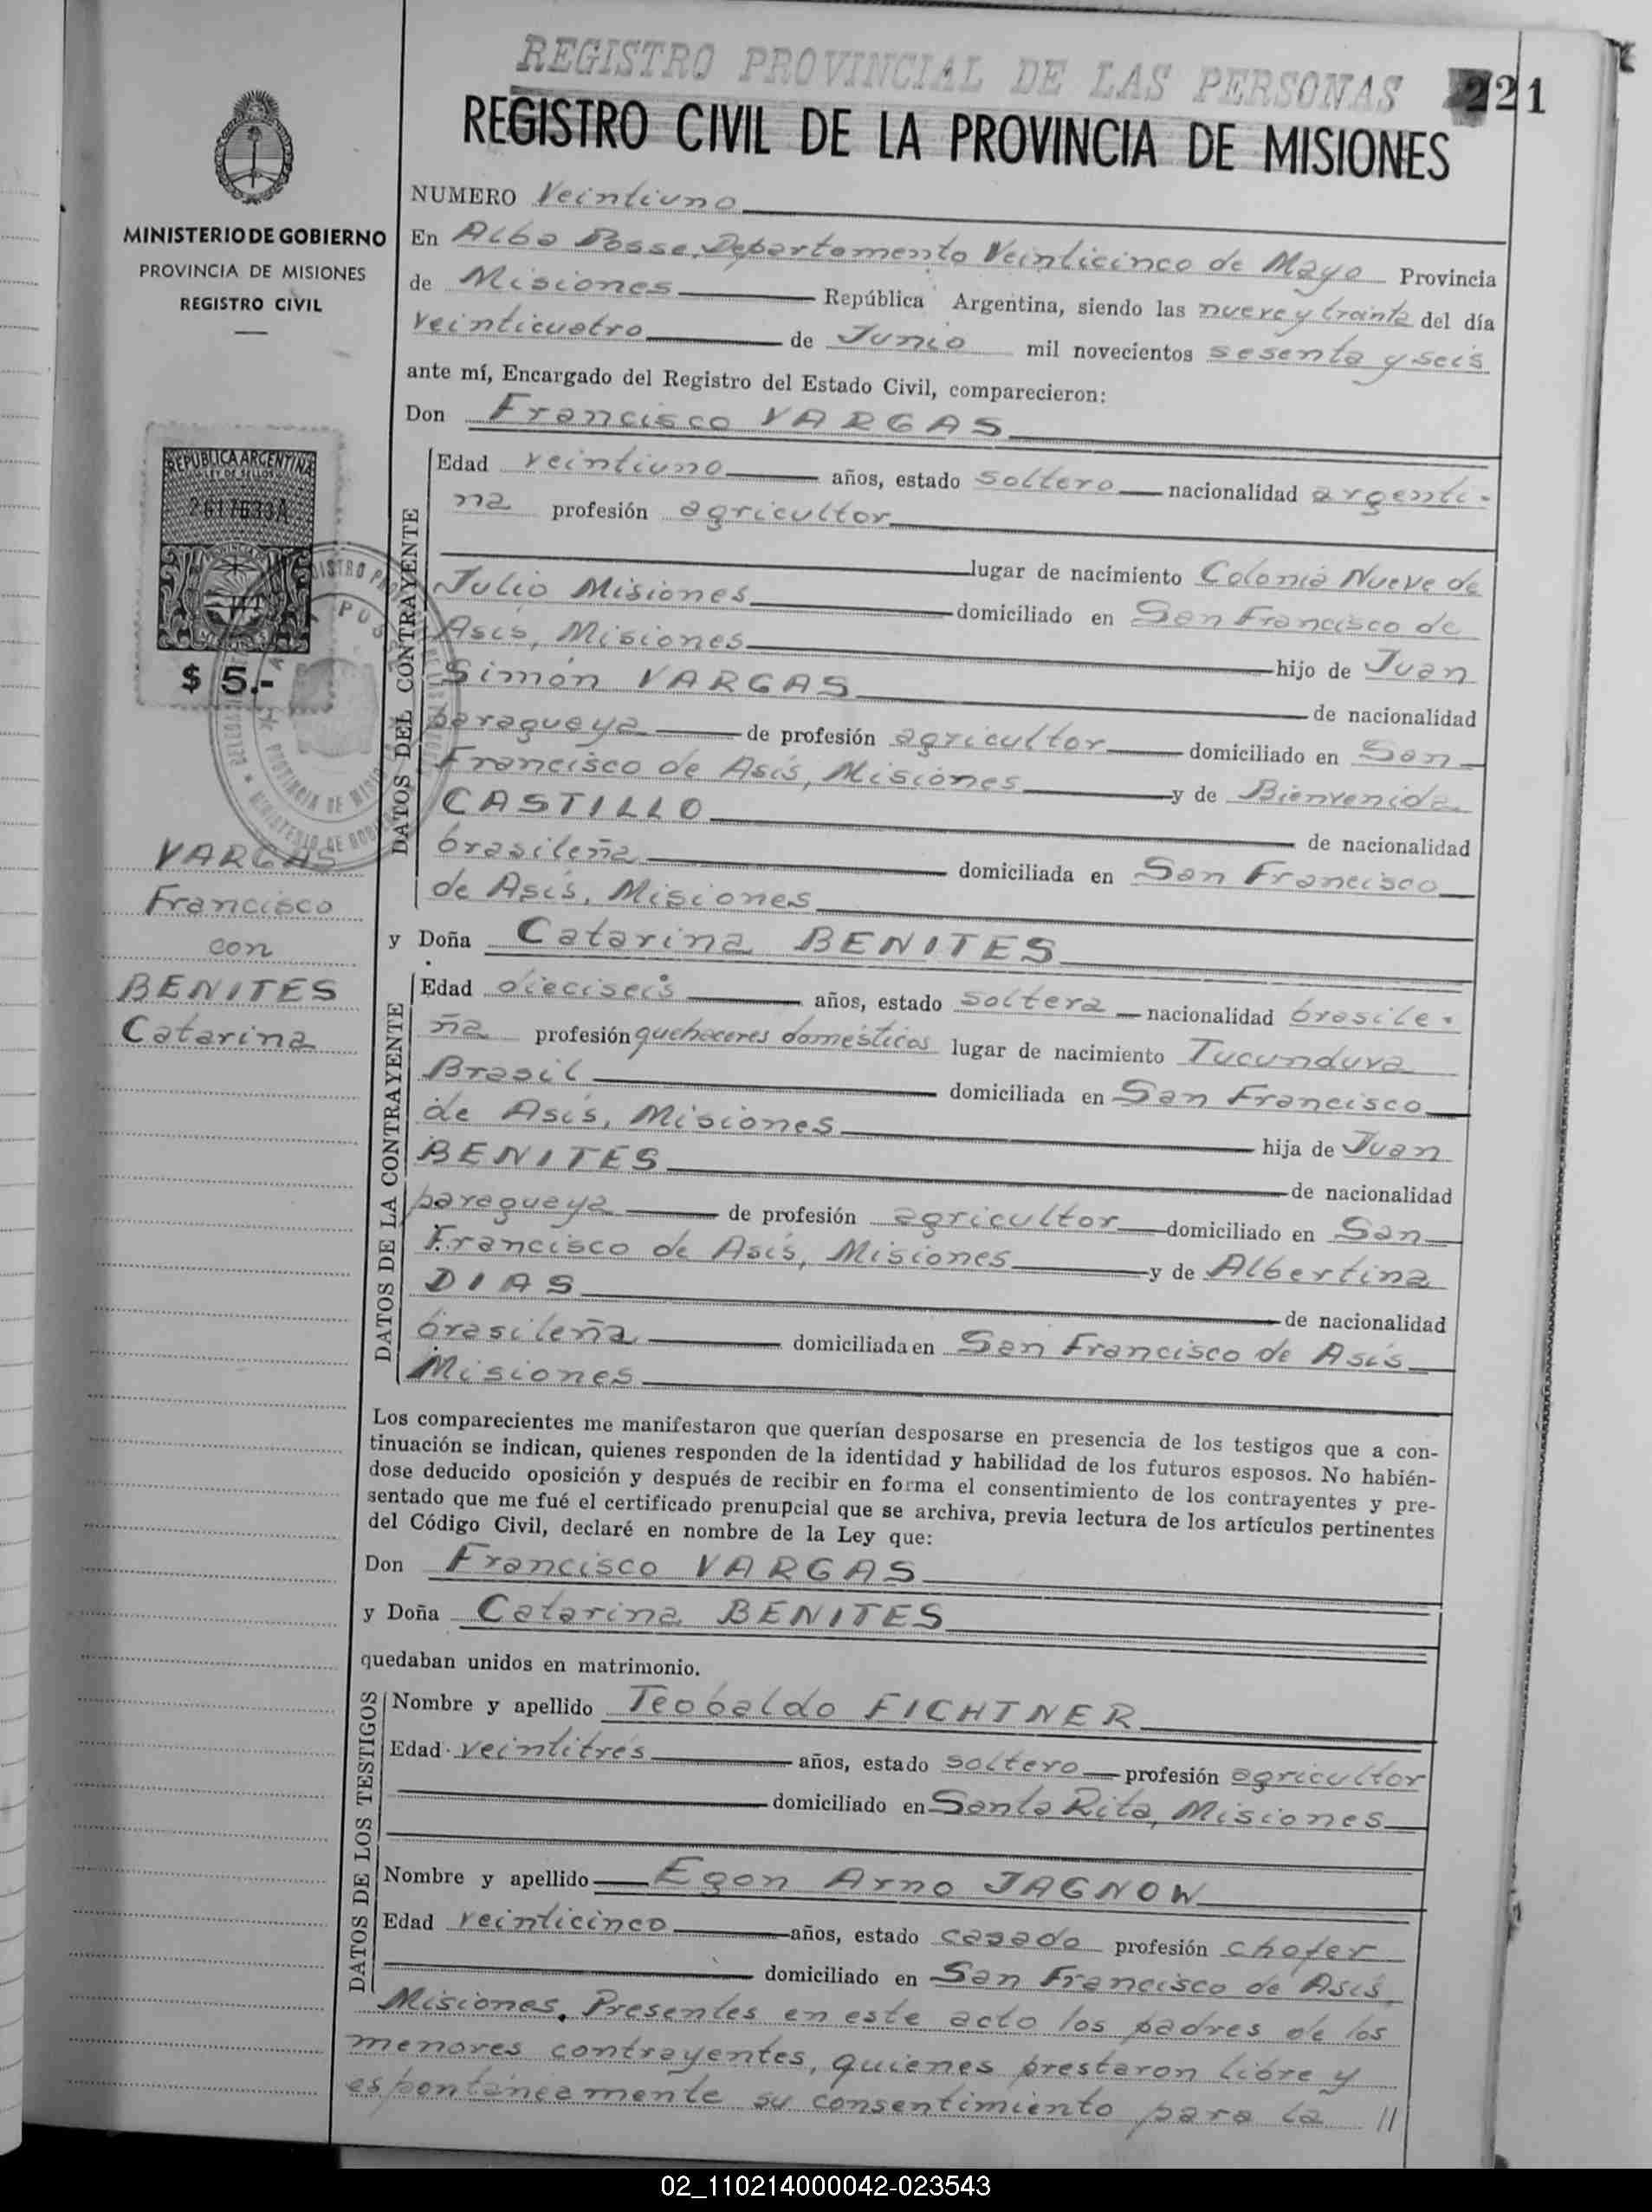 REGISTRO PROVINCIAL DE LAS PERSONAS 221
REGISTRO CIVIL DE LA PROVINCIA DE MISIONES
MINISTERIO DE GOBIERNO
PROVINCIA DE MISIONES
REGISTRO CIVIL
REPUBLICA ARGENTINA
LEY DE SELLOS
2617633A
$ 5.-
VARGAS
Francisco
con
BENITES
Catarina
NUMERO Veintiuno
En Alba Posse, Departamento Veinticinco de Mayo Provincia
de Misiones República Argentina, siendo las nueve y treinta del día
veinticuatro de Junio mil novecientos sesenta y seis
ante mí, Encargado del Registro del Estado Civil, comparecieron:
Don Francisco VARGAS
DATOS DEL CONTRAYENTE
Edad veintiuno años, estado soltero nacionalidad argenti-
na profesión agricultor
lugar de nacimiento Colonia Nueve de
Julio Misiones domiciliado en San Francisco de
Asís, Misiones hijo de Juan
Simón VARGAS de nacionalidad
paraguaya de profesión agricultor domiciliado en San
Francisco de Asís, Misiones y de Bienvenida
CASTILLO de nacionalidad
brasileña domiciliada en San Francisco
de Asís, Misiones
y Doña Catarina BENITES
DATOS DE LA CONTRAYENTE
Edad dieciseis años, estado soltera nacionalidad brasile-
ña profesión quehaceres domésticos lugar de nacimiento Tucunduva
Brasil domiciliada en San Francisco
de Asís, Misiones hija de Juan
BENITES de nacionalidad
paraguaya de profesión agricultor domiciliado en San
Francisco de Asís, Misiones y de Albertina
DIAS de nacionalidad
brasileña domiciliada en San Francisco de Asís
Misiones
Los comparecientes me manifestaron que querían desposarse en presencia de los testigos que a con-
tinuación se indican, quienes responden de la identidad y habilidad de los futuros esposos. No habién-
dose deducido oposición y después de recibir en forma el consentimiento de los contrayentes y pre-
sentado que me fué el certificado prenupcial que se archiva, previa lectura de los artículos pertinentes
del Código Civil, declaré en nombre de la Ley que:
Don Francisco VARGAS
y Doña Catarina BENITES
quedaban unidos en matrimonio.
DATOS DE LOS TESTIGOS
Nombre y apellido Teobaldo FICHTNER
Edad veintitrés años, estado soltero profesión agricultor
domiciliado en Santa Rita, Misiones
Nombre y apellido Egon Arno JAGNOW
Edad veinticinco años, estado casado profesión chofer
domiciliado en San Francisco de Asís,
Misiones. Presentes en este acto los padres de los
menores contrayentes, quienes prestaron libre y
espontáneamente su consentimiento para la //
02_110214000042-023543